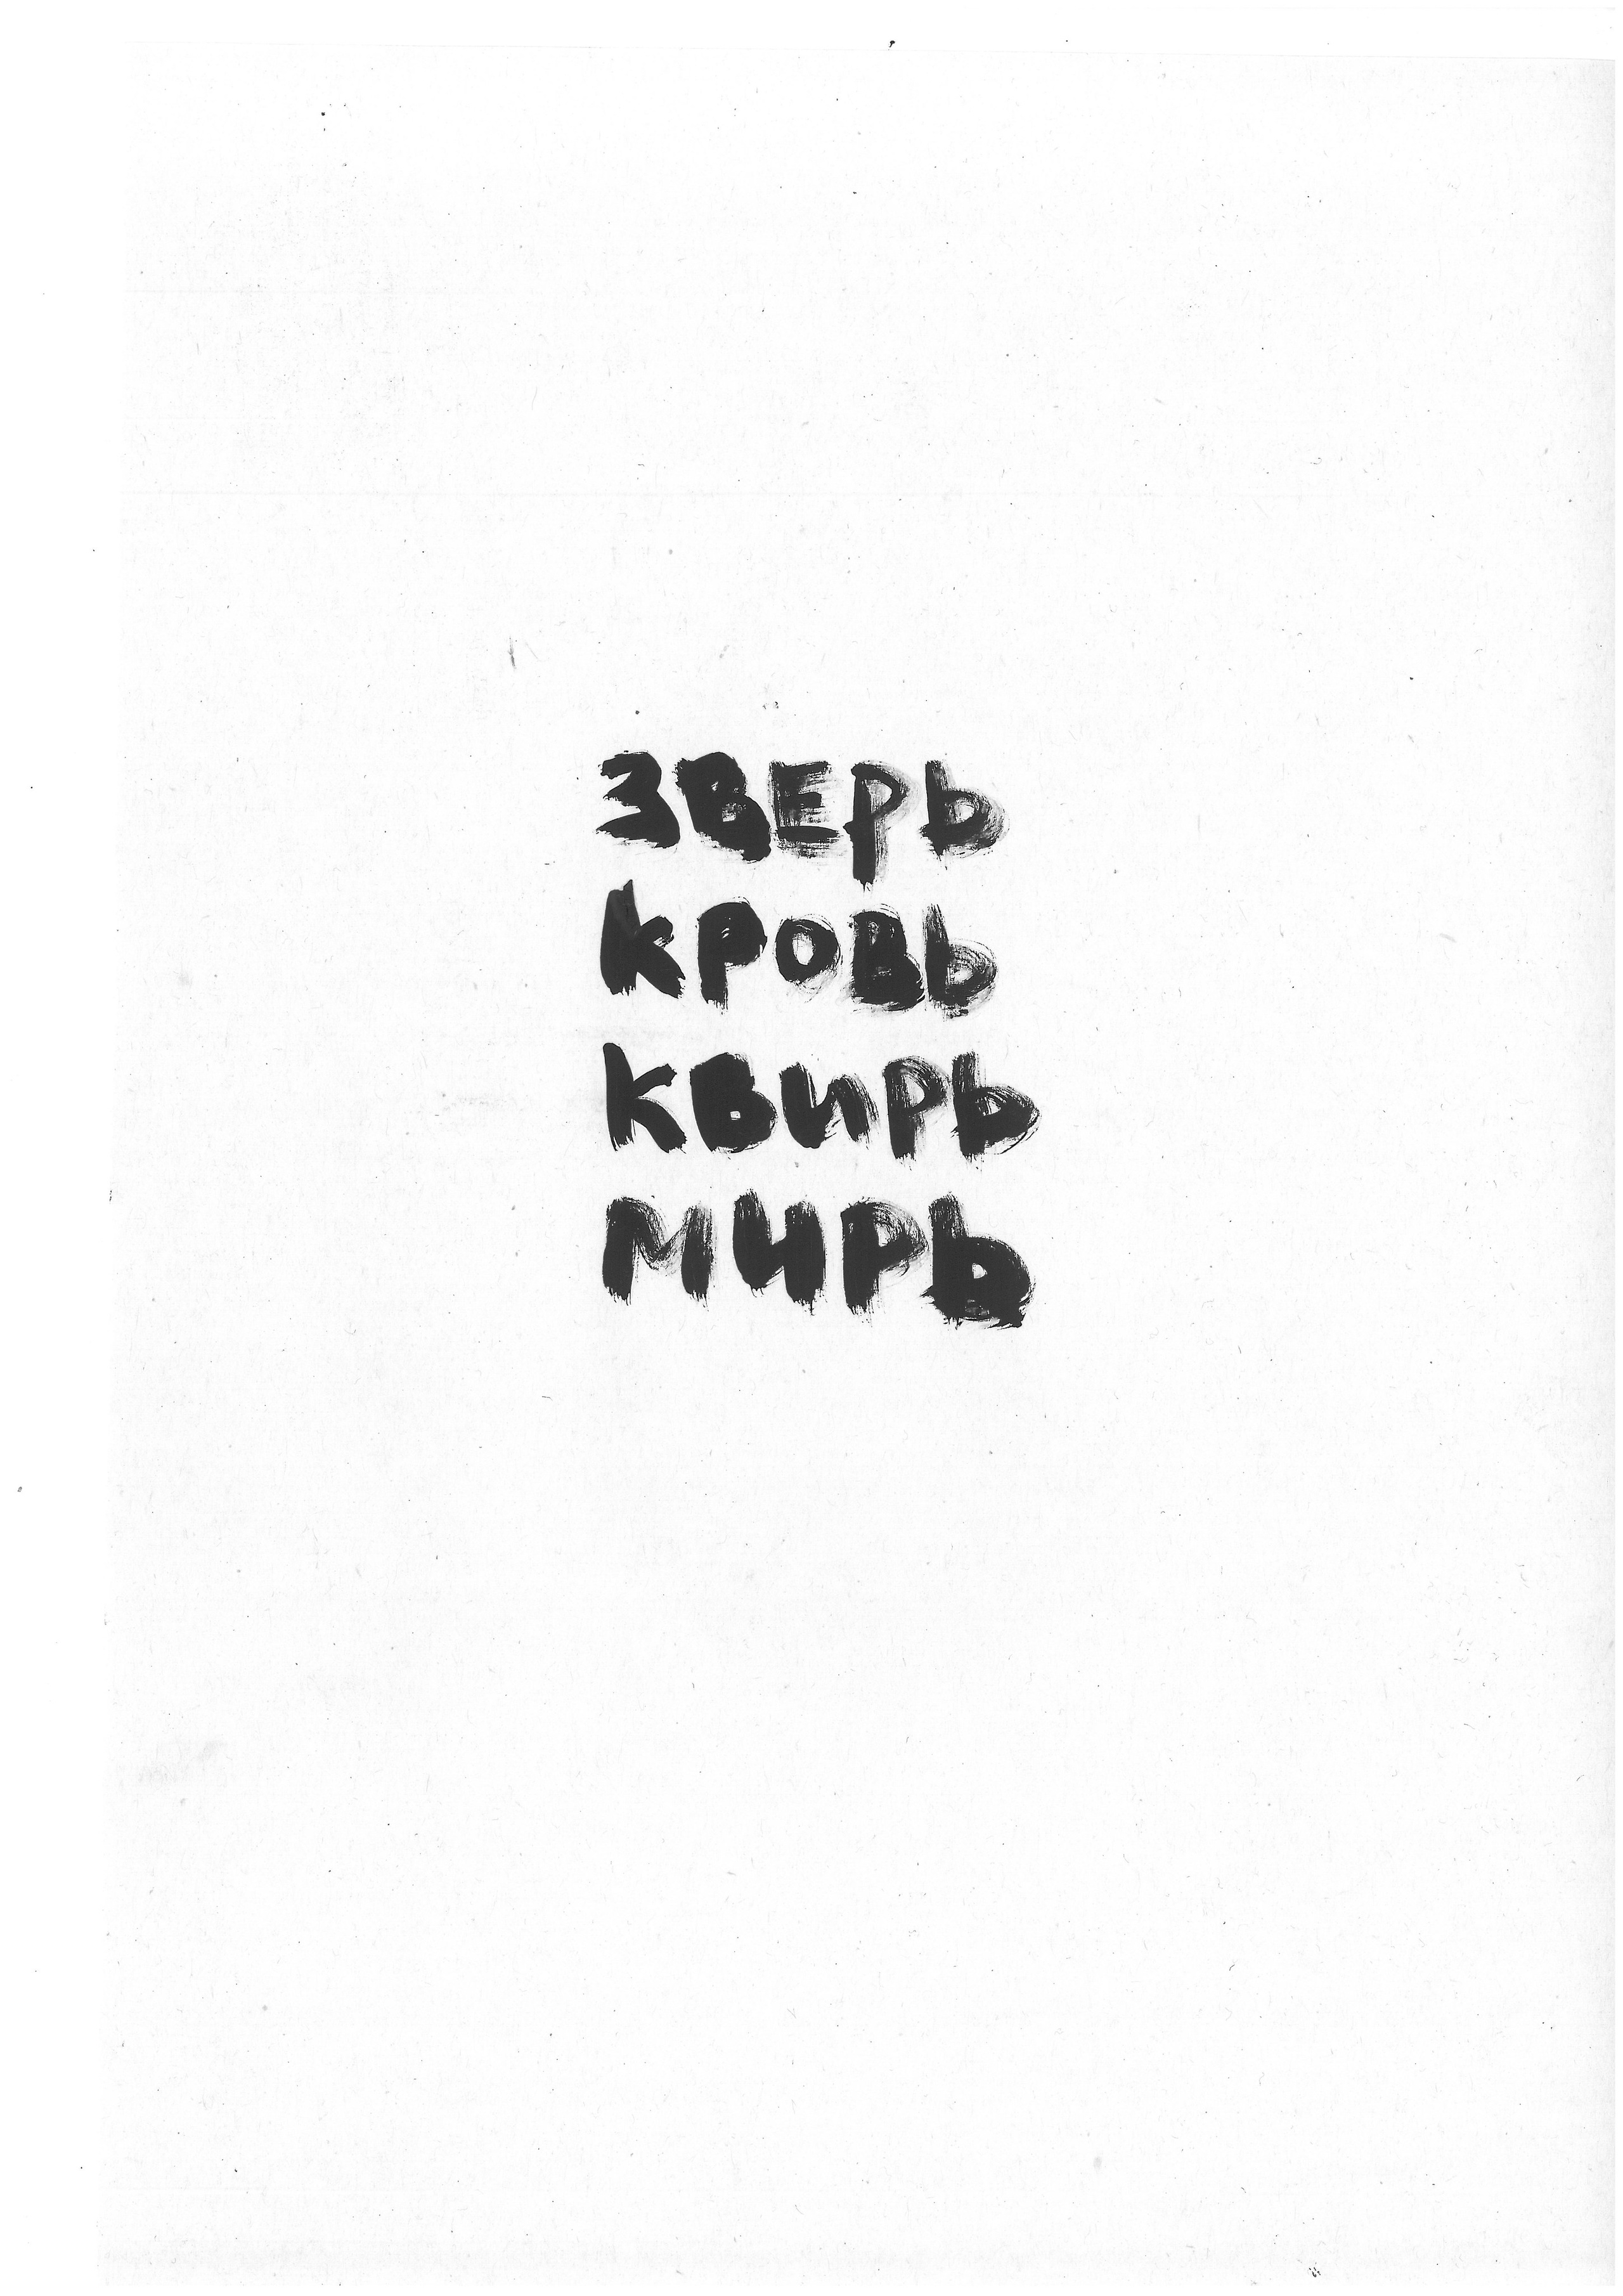 зверь
кровь
квирь
мирь